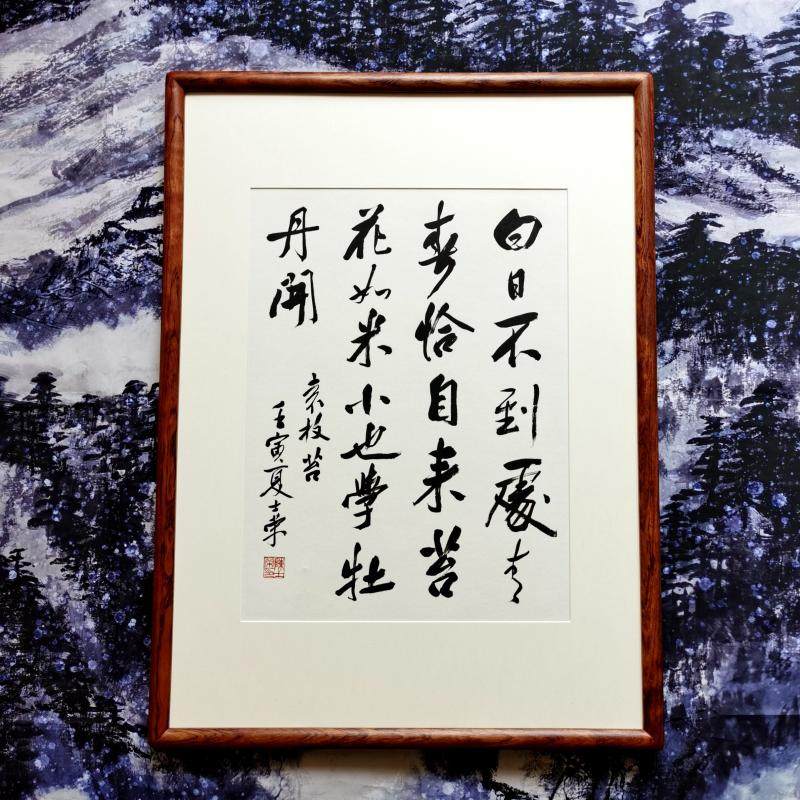 白日不到處青
春恰自來苔
花如米小也學牡
丹開
袁枚苔
壬寅夏士榮